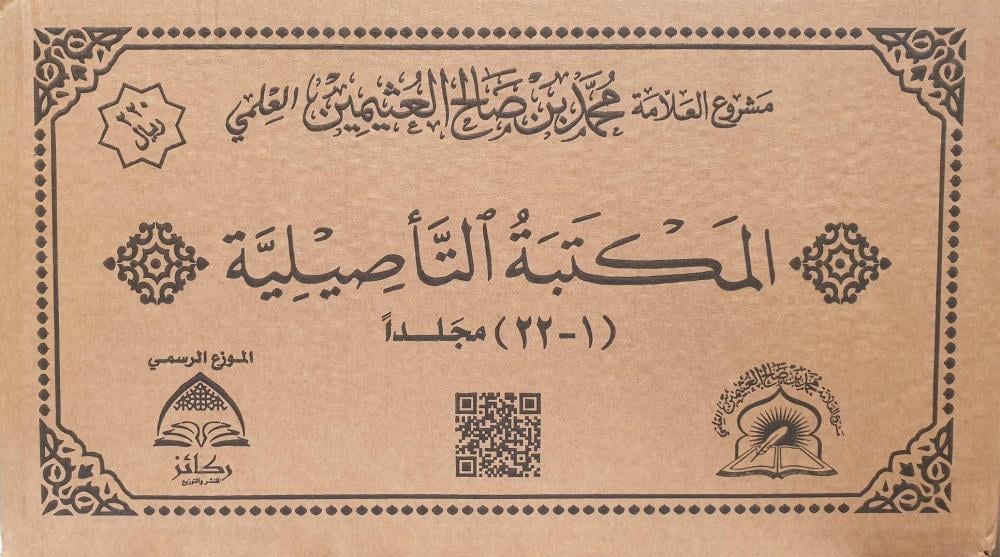 مشروع العلامة محمد بن صالح العثيمين العلمي
٢٢٠
ريال
المَكتَبَةُ التَّأصِيْلِيَّة
(١-٢٢) مجَلـداً
الموزع الرسمي
ركائز
للنشر والتوزيع
مشروع العلامة محمد بن صالح العثيمين العلمي